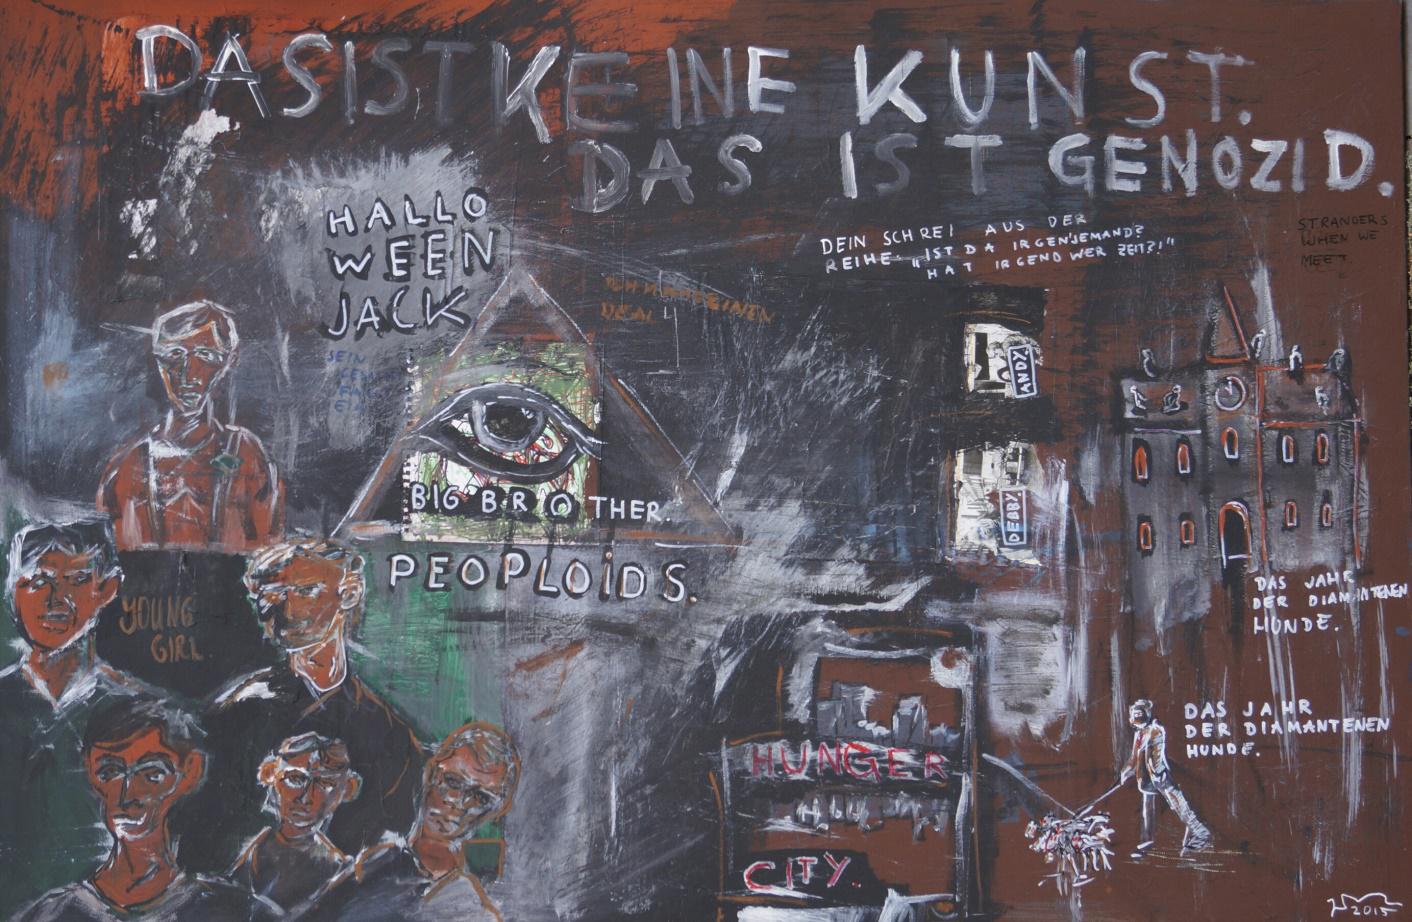 DAS IST KEINE KUNST.
DAS IST GENOZID.
HALLO
WEEN
JACK
DEIN SCHREI AUS DER
REIHE: "IST DA IRGENJEMAND?
HAT IRGENDWER ZEIT?!"
STRANGERS
WHEN WE
MEET.
SEIN
ANDY
DEBBY
BIG BROTHER.
PEOPLOIDS.
YOUNG
GIRL.
DAS JAHR
DER DIAMANTENEN
HUNDE.
DAS JAHR
DER DIAMANTENEN
HUNDE.
HUNGER
CITY.
2015